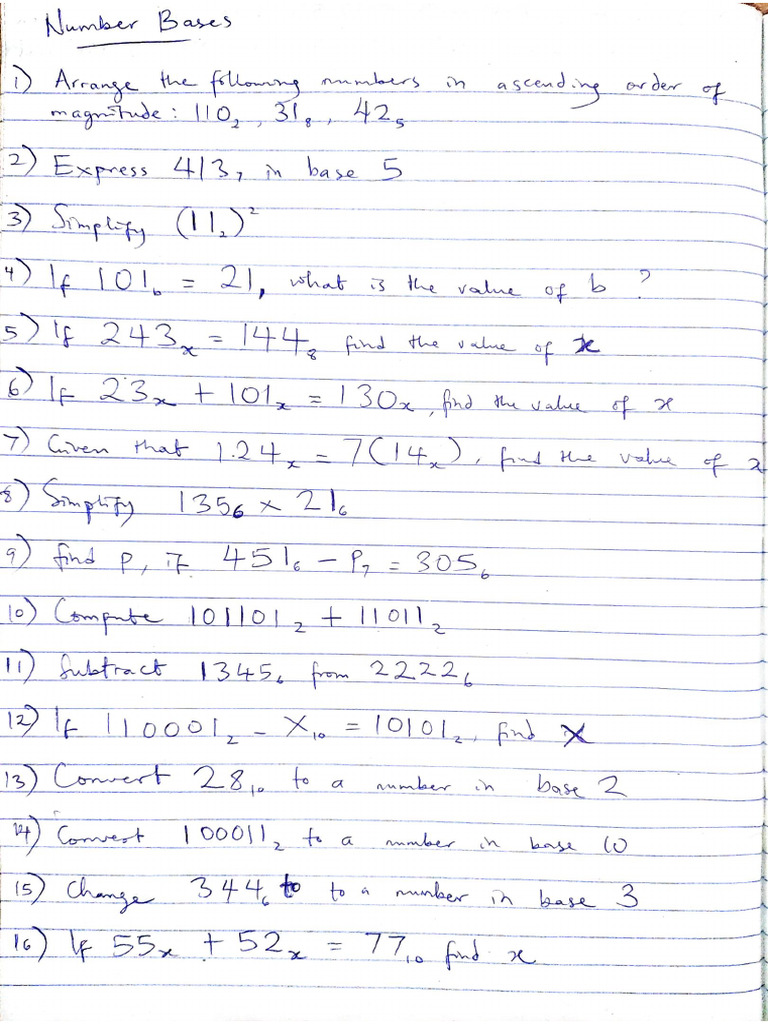 Number Bases
1) Arrange the following numbers in ascending order of
magnitude: 110₂, 31₈, 42₅
2) Express 413₇ in base 5
3) Simplify (11₂)²
4) If 101₆ = 21, what is the value of b ?
5) If 243ₓ = 144₈ find the value of x
6) If 23ₓ + 101ₓ = 130ₓ, find the value of x
7) Given that 1.24ₓ = 7(14ₓ), find the value of x
8) Simplify 135₆ × 21₆
9) find P, if 451₆ – P₇ = 305₆
10) Compute 101101₂ + 11011₂
11) Subtract 1345₆ from 2222₆
12) If 110001₂ – X₁₀ = 10101₂, find X
13) Convert 28₁₀ to a number in base 2
14) Convert 100011₂ to a number in base 10
15) Change 344₆ to to a number in base 3
16) If 55ₓ + 52ₓ = 77₁₀ find x